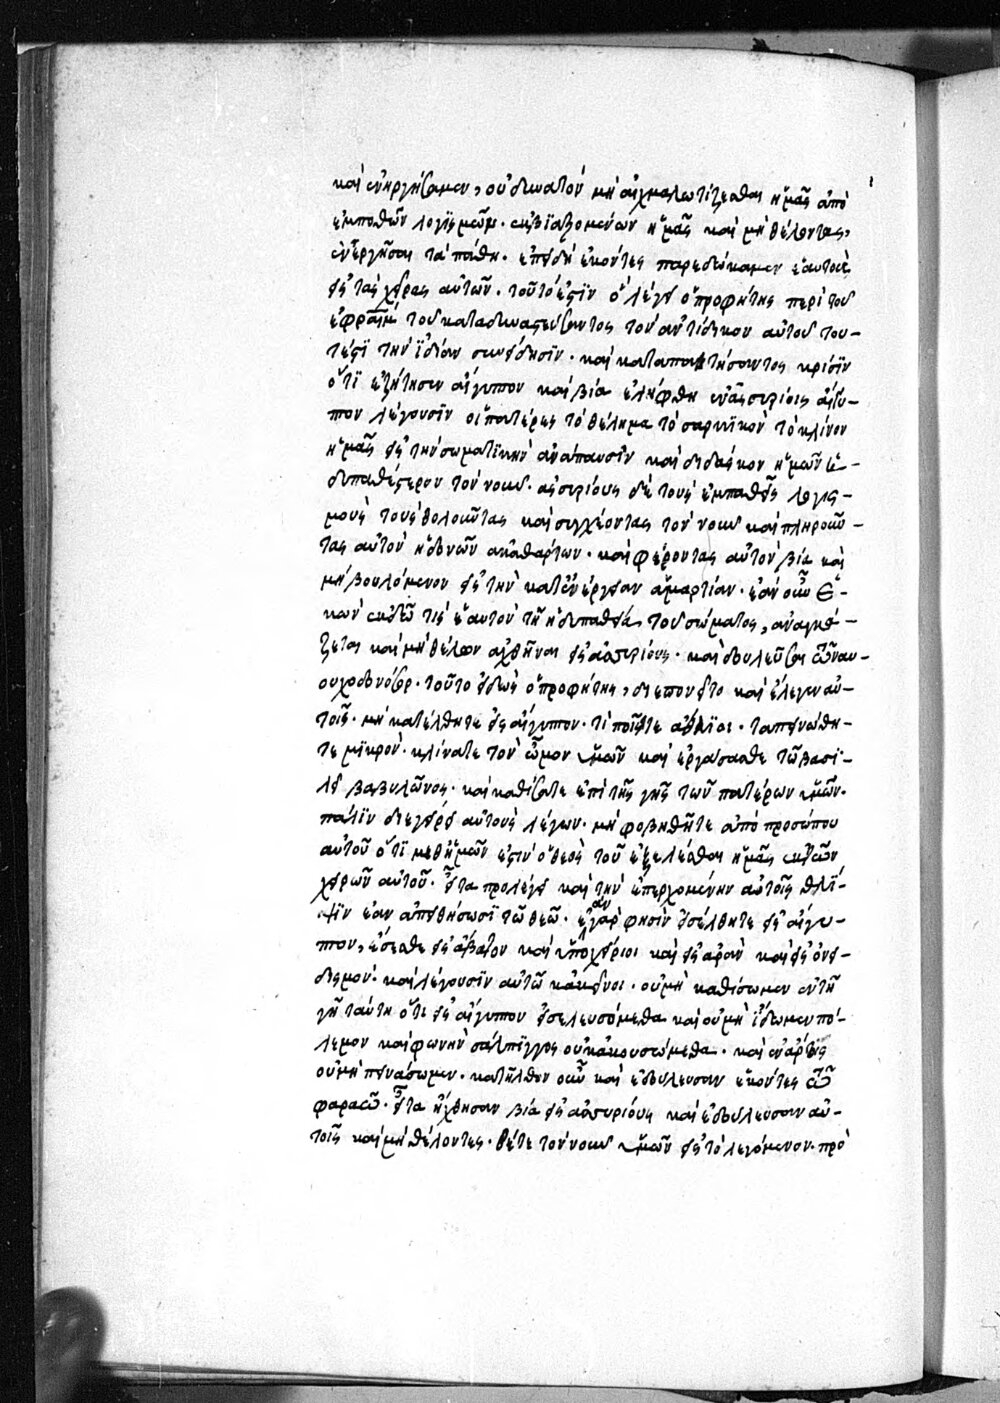 καὶ ἐνηργήσαμεν, οὐ δυνατόν μὴ αἰχμαλωτίζεσθαι ἡμᾶς ἀπὸ
ἐμπαθῶν λογϊσμῶν. ἐκβϊαζομένων ἡμᾶς καὶ μὴ θέλοντας,
ἐνεργῆσαι τὰ πάθη. ἐπειδὴ ἑκόντες παρεδώκαμεν ἑαυτοὺς
εἰς τὰς χεῖρας αὐτῶν. τοῦτό ἐστϊν ὃ λέγει ὁ προφήτης περὶ τοῦ
ἐφραῒμ τοῦ καταδυναστεύσαντος τὸν ἀντίδικον αὐτοῦ του-
τέστϊ τὴν ϊδίαν συνείδησϊν. καὶ καταπατήσαντος κρίσϊν
ὅτϊ ἐζήτησεν αἴγυπτον καὶ βία ἐλήφθη εἰς ἀσσυρίους αἴγυ-
πτον λέγουσϊν οἱ πατέρες τὸ θέλημα τὸ σαρκϊκὸν τὸ κλίνον
ἡμᾶς εἰς τὴν σωματϊκὴν ἀνάπαυσϊν καὶ διδάσκον ἡμῶν ἡ-
δυπαθέστερον τὸν νοῦν. ἀσσυρίους δὲ τοὺς ἐμπαθεῖς λογισ-
μοὺς τοὺς θολοῦντας καὶ συγχέοντας τὸν νοῦν καὶ πληροῦν-
τας αὐτὸν ἡδονῶν ἀκαθάρτων. καὶ φέροντας αὐτὸν βία καὶ
μὴ βουλόμενον εἰς τὴν κατενέργειαν ἁμαρτίαν. ἐὰν οὖν ἑ-
κὼν ἐκδῶ τὶς ἑαυτὸν τῆ ἡδυπαθεία τοῦ σώματος, ἀναγκά-
ζεται καὶ μὴ θέλων ἀχθῆναι εἰς ἀσσυρίους. καὶ δουλεῦσαι τῶ ναυ-
ουχοδονόσορ. τοῦτο εἰδὼς ὁ προφήτης, διεπονεῖτο καὶ ἔλεγεν αὐ-
τοῖς. μὴ κατέλθητε εἰς αἴγυπτον. τί ποιεῖτε ἄθλϊοι. ταπεινώθη-
τε μϊκρόν. κλίνατε τὸν ὦμον ὑμῶν καὶ ἐργάσασθε τῶ βασϊ-
λεῖ βαβυλῶνος. καὶ καθίσατε ἐπὶ τῆς γῆς τῶν πατέρων ὑμῶν.
πάλϊν διεγείρει αὐτοὺς λέγων. μὴ φοβηθῆτε ἀπὸ προσώπου
αὐτοῦ ὅτϊ μεθ ἡμῶν ἐστιν ὁ θεὸς τοῦ ἐξελέσθαι ἡμᾶς ἐκ τῶν
χειρῶν αὐτοῦ. εἶτα προλέγει καὶ τὴν ἐπερχομένην αὐτοῖς θλϊ-
ψϊν ἐὰν ἀπειθήσωσϊ τῶ θεῶ. ἐὰν γὰρ φησὶν εἰσέλθητε εἰς αἴγυ-
πτον, ἔσεσθε εἰς ἄβατον καὶ ὑποχείριοι καὶ εἰς ἀρὰν καὶ εἰς ὀνει-
δισμόν. καὶ λέγουσϊν αὐτῶ κἀκεῖνοι. οὐ μὴ καθίσωμεν ἐν τῆ
γῆ ταύτη ὅτι εἰς αἴγυπτον εἰσελευσόμεθα καὶ οὐ μὴ ἴδωμεν πό-
λεμον καὶ φωνὴν σάλπϊγγος οὐκ ἀκουσώμεθα. καὶ ἐν ἄρτοις
οὐ μὴ πεινάσωμεν. κατῆλθον οὖν καὶ ἐδούλευσαν ἑκόντες τῶ
φαραῶ. εἶτα ἤχθησαν βία εἰς ἀσσυρίους καὶ ἐδούλευσαν αὐ-
τοῖς καὶ μὴ θέλοντες. θέτε τὸν νοῦν ὑμῶν εἰς τὸ λεγόμενον. πρὸ